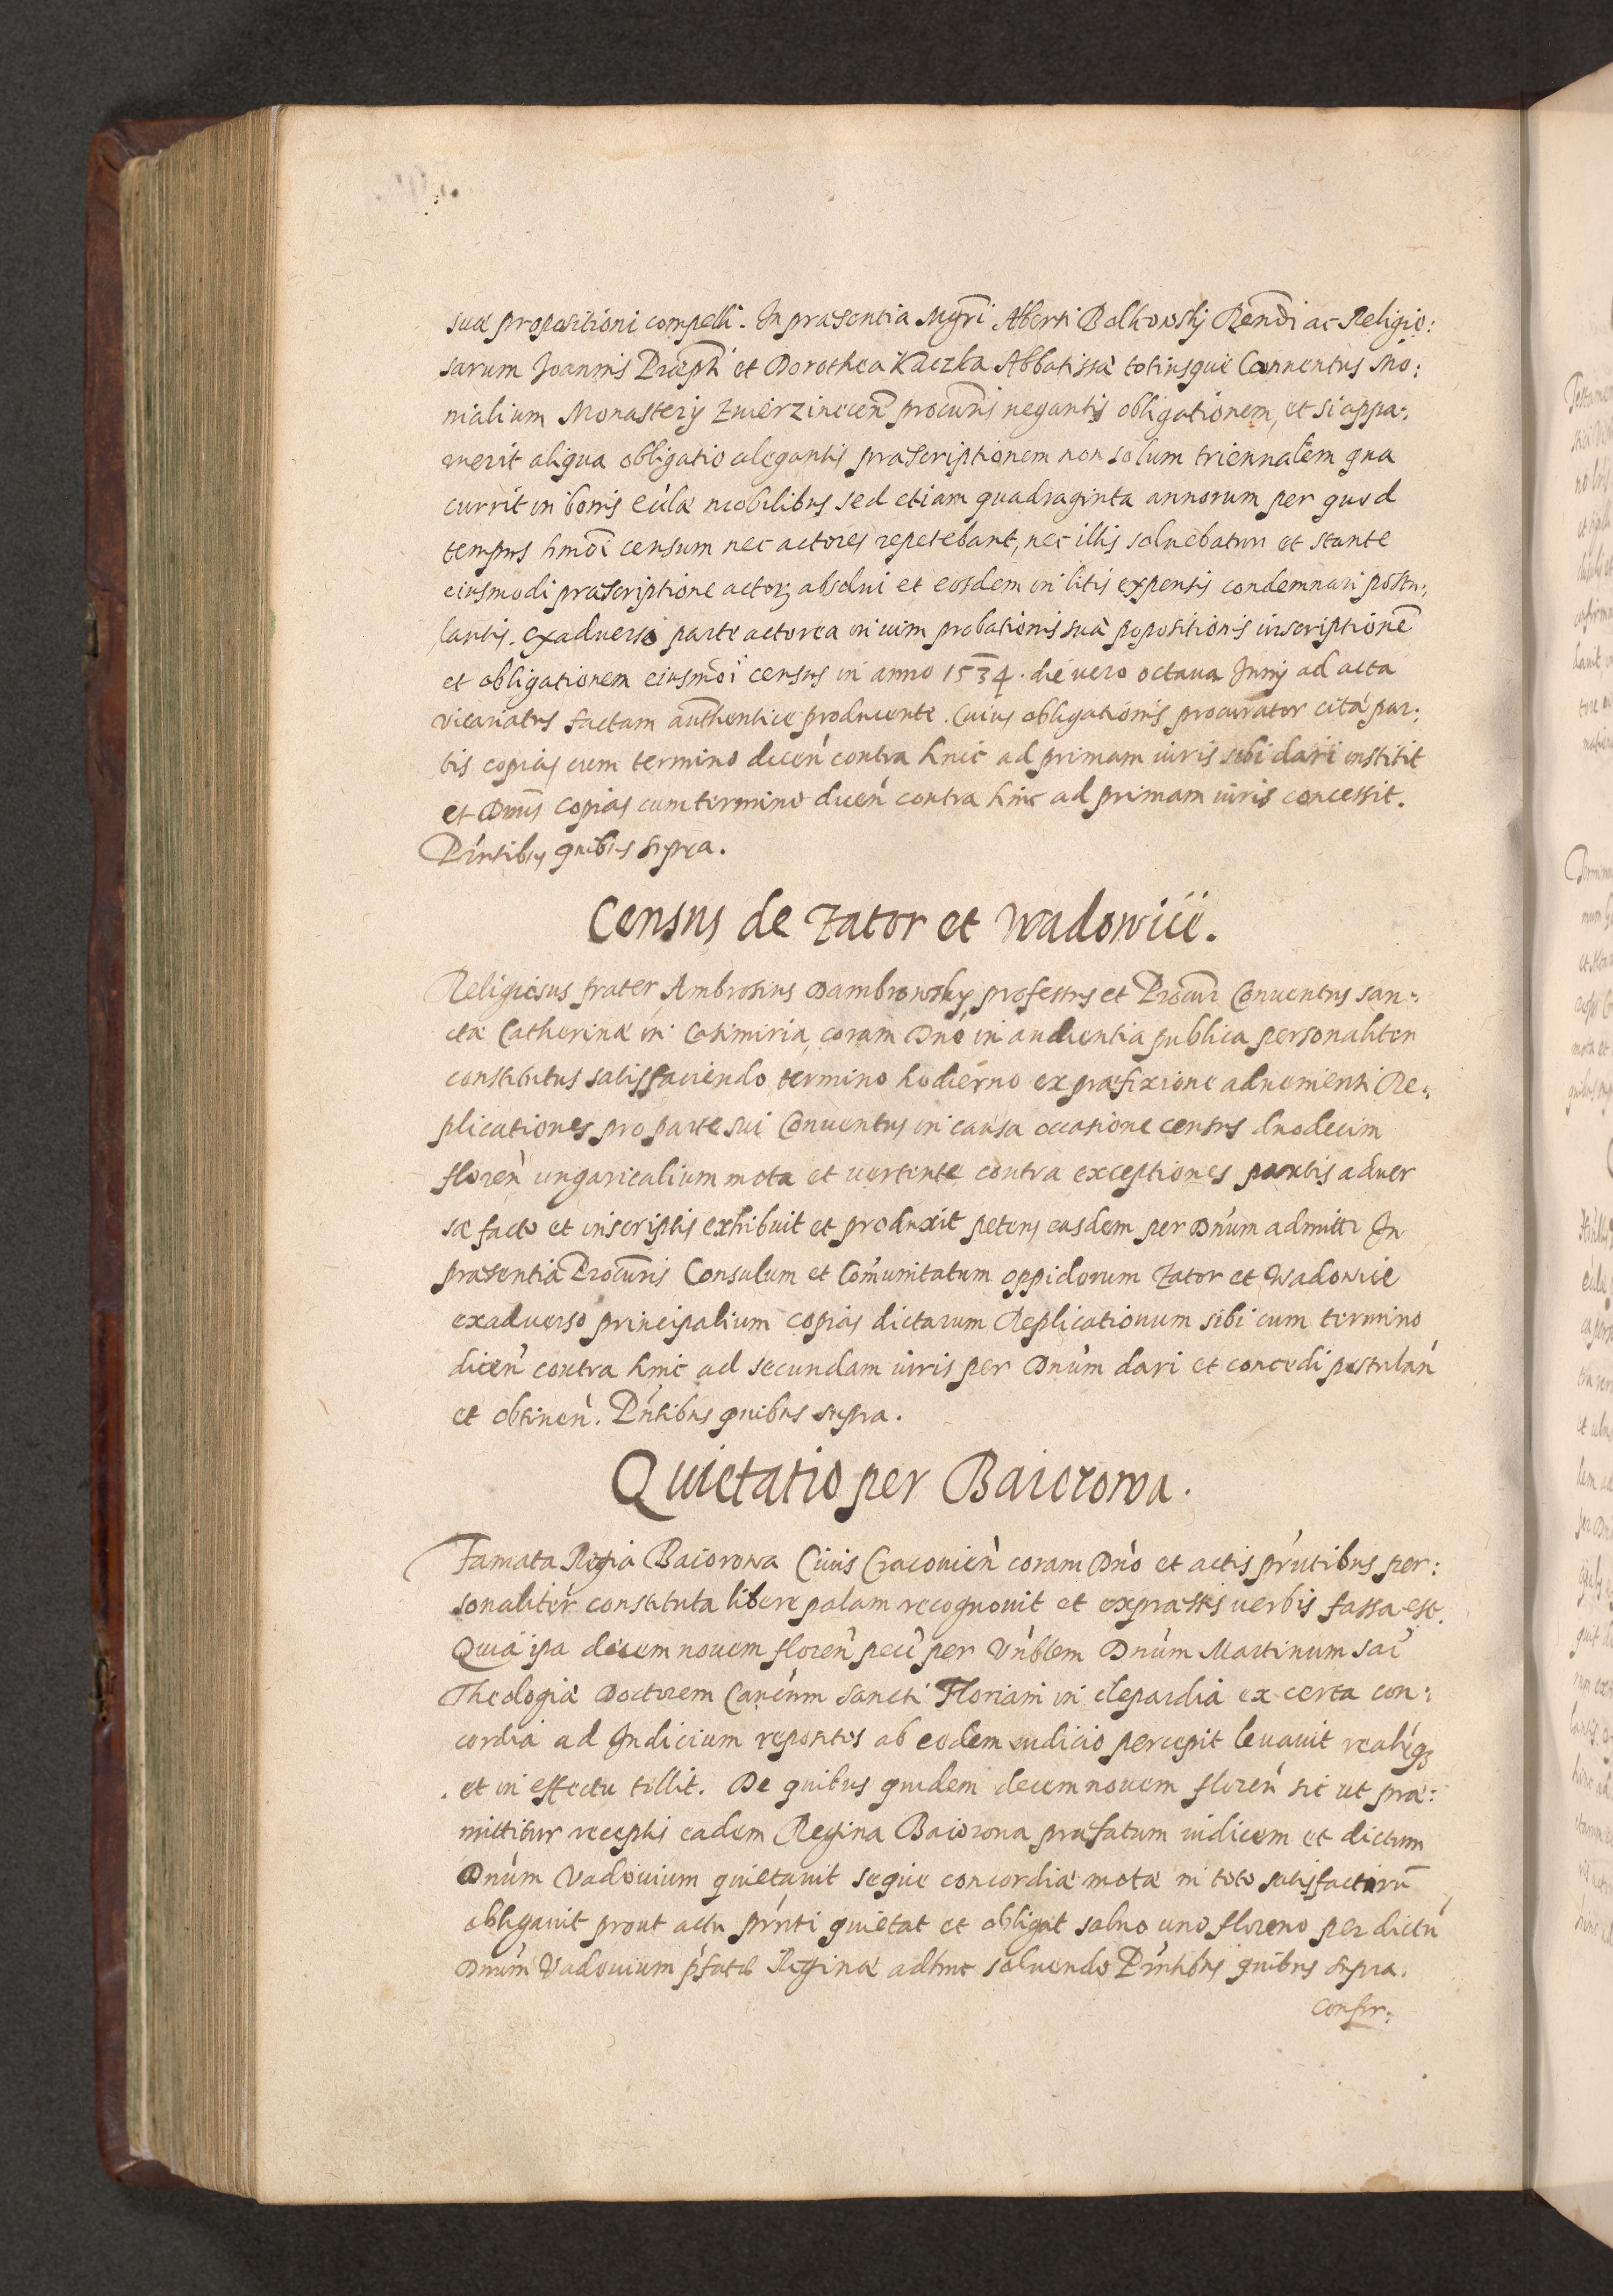 suæ propositioni compelli. In præsentia Mgri Alberti Bolkowskÿ Rendi ac Religio:
sarum Joannis Præpti et Dorotheæ Kaczka Abbatissæ totiusque Conuentus Mo:
nialium Monasterÿ Zwierzinecen̄ procuris negantis obligationem, et si appa:
ruerit aliqua obligatio alegantis præscriptionem non solum triennalem qua
currit in bonis eccla mobilibus sed etiam quadraginta annorum per quod
tempus hmoi censum nec actores repetebant, nec illis soluebatur et stante
eiusmodi præscriptione actorȝ absolui et eosdem in litis expensis condemnari postu:
lantis. Exaduerso parte actorea in uim probationis suæ propositionis inscriptionē
et obligationem eiusmōi census in anno 1534. die uero octaua Junÿ ad acta
vicariatus factam authentice producente. Cuius obligationis procurator citæ par:
tis copias cum termino dicen̄ contra hinc ad primam iuris sibi dari institit
et Dnus copias cum termino dicen̄ contra hinc ad primam iuris concessit.
Pntibus quibus supra.
Census de Zator et Wadowice.
Religiosus frater Ambrosius Dambrowsky professus et Procur Conuentus san:
ctæ Catherinæ in Casimiria, coram Dno, in audientia publica personaliter
constitutus satisffaciendo termino hodierno ex præfixione aduenienti Re:
plicationes pro parte sui Conuentus in causa occasione census duodecim
floren̄ ungaricalium mota et uertente contra exceptiones partis aduer
sæ facto et inscriptis exhibuit et produxit petens easdem per Dnum admitti In
præsentia Procuris Consulum et Comunitatum oppidorum Zator et Wadowice
exaduerso principalium copias dictarum Replicationum sibi cum termino
dicen̄ contra hinc ad secundam iuris per Dnum dari et concedi postulan̄
et obtinen̄. Pntibus quibus supra.
Quietatio per Baiorowa.
Famata Regia Baiorowa Ciuis Cracouien̄ coram Dno et actis pntibus per:
sonaliter constituta libere palam recognouit et expressis uerbis fassa est.
Quia ipa decem nouem floren̄ pecc per Vnblem Dnum Martinum Sac
Theologiæ Doctorem Cancum Sancti Floriani in clepardia ex certa con:
cordia ad Iudicium repositos ab eodem iudicio percepit leuauit realiqȝ
et in effectu tullit. De quibus quidem decemnouem floren̄ sic ut præ:
mittitur receptis eadem Regina Baiorowa præfatum iudicem et dictum
Dnum Vadouium quietauit seque concordiæ motæ in toto satisfacturū
obligauit prout actu pnti quietat et obligat saluo uno floreno per dictū
Dnum Vadouium pfatæ Reginæ adhuc soluendo Pntibus quibus supra.
Confir: